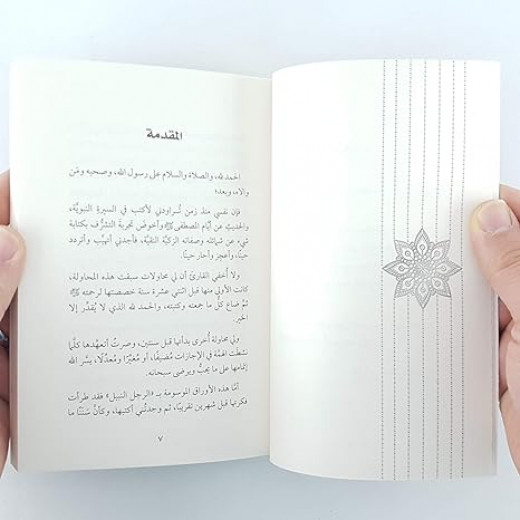 المقدمة
الحمد لله، والصلاة والسلام على رسول الله، وصحبه ومَن
والاه، وبعد؛
فإن نفسي منذ زمن تُراودني لأكتب في السيرة النبويَّة،
والحديث عن أيَّام المصطفى ﷺ وأخوض تجربة التشرُّف بكتابة
شيء عن شمائله وصفاته الزكيَّة النقيَّة، فأجدني أتهيَّب وأتردد
حينًا، وأعجز وأحار حينًا.
ولا أُخفي القارئ أن لي محاولات سبقت هذه المحاولة،
كانت الأولى منها قبل اثنتي عشرة سنة خصصتها لرحمته ﷺ
ثمَّ ضاع كل ما جمعته وكتبته، والحمد لله الذي لا يُقدِّر إلا
الخير.
ولي محاولة أُخرى بدأتها قبل سنتين، وصرتُ أتعهَّدها كلَّما
نشطت الهمَّة في الإجازات مُضيفًا، أو مُغيِّرًا ومُعدِّلًا، يسَّر الله
إتمامها على ما يحبُّ ويرضى سبحانه.
أمَّا هذه الأوراق الموسومة بـ «الرجل النبيل» فقد طرأت
فكرتها قبل شهرين تقريبًا، ثم وجدتُني أكتبها، وكأنَّ سَنَنًا ما
٧